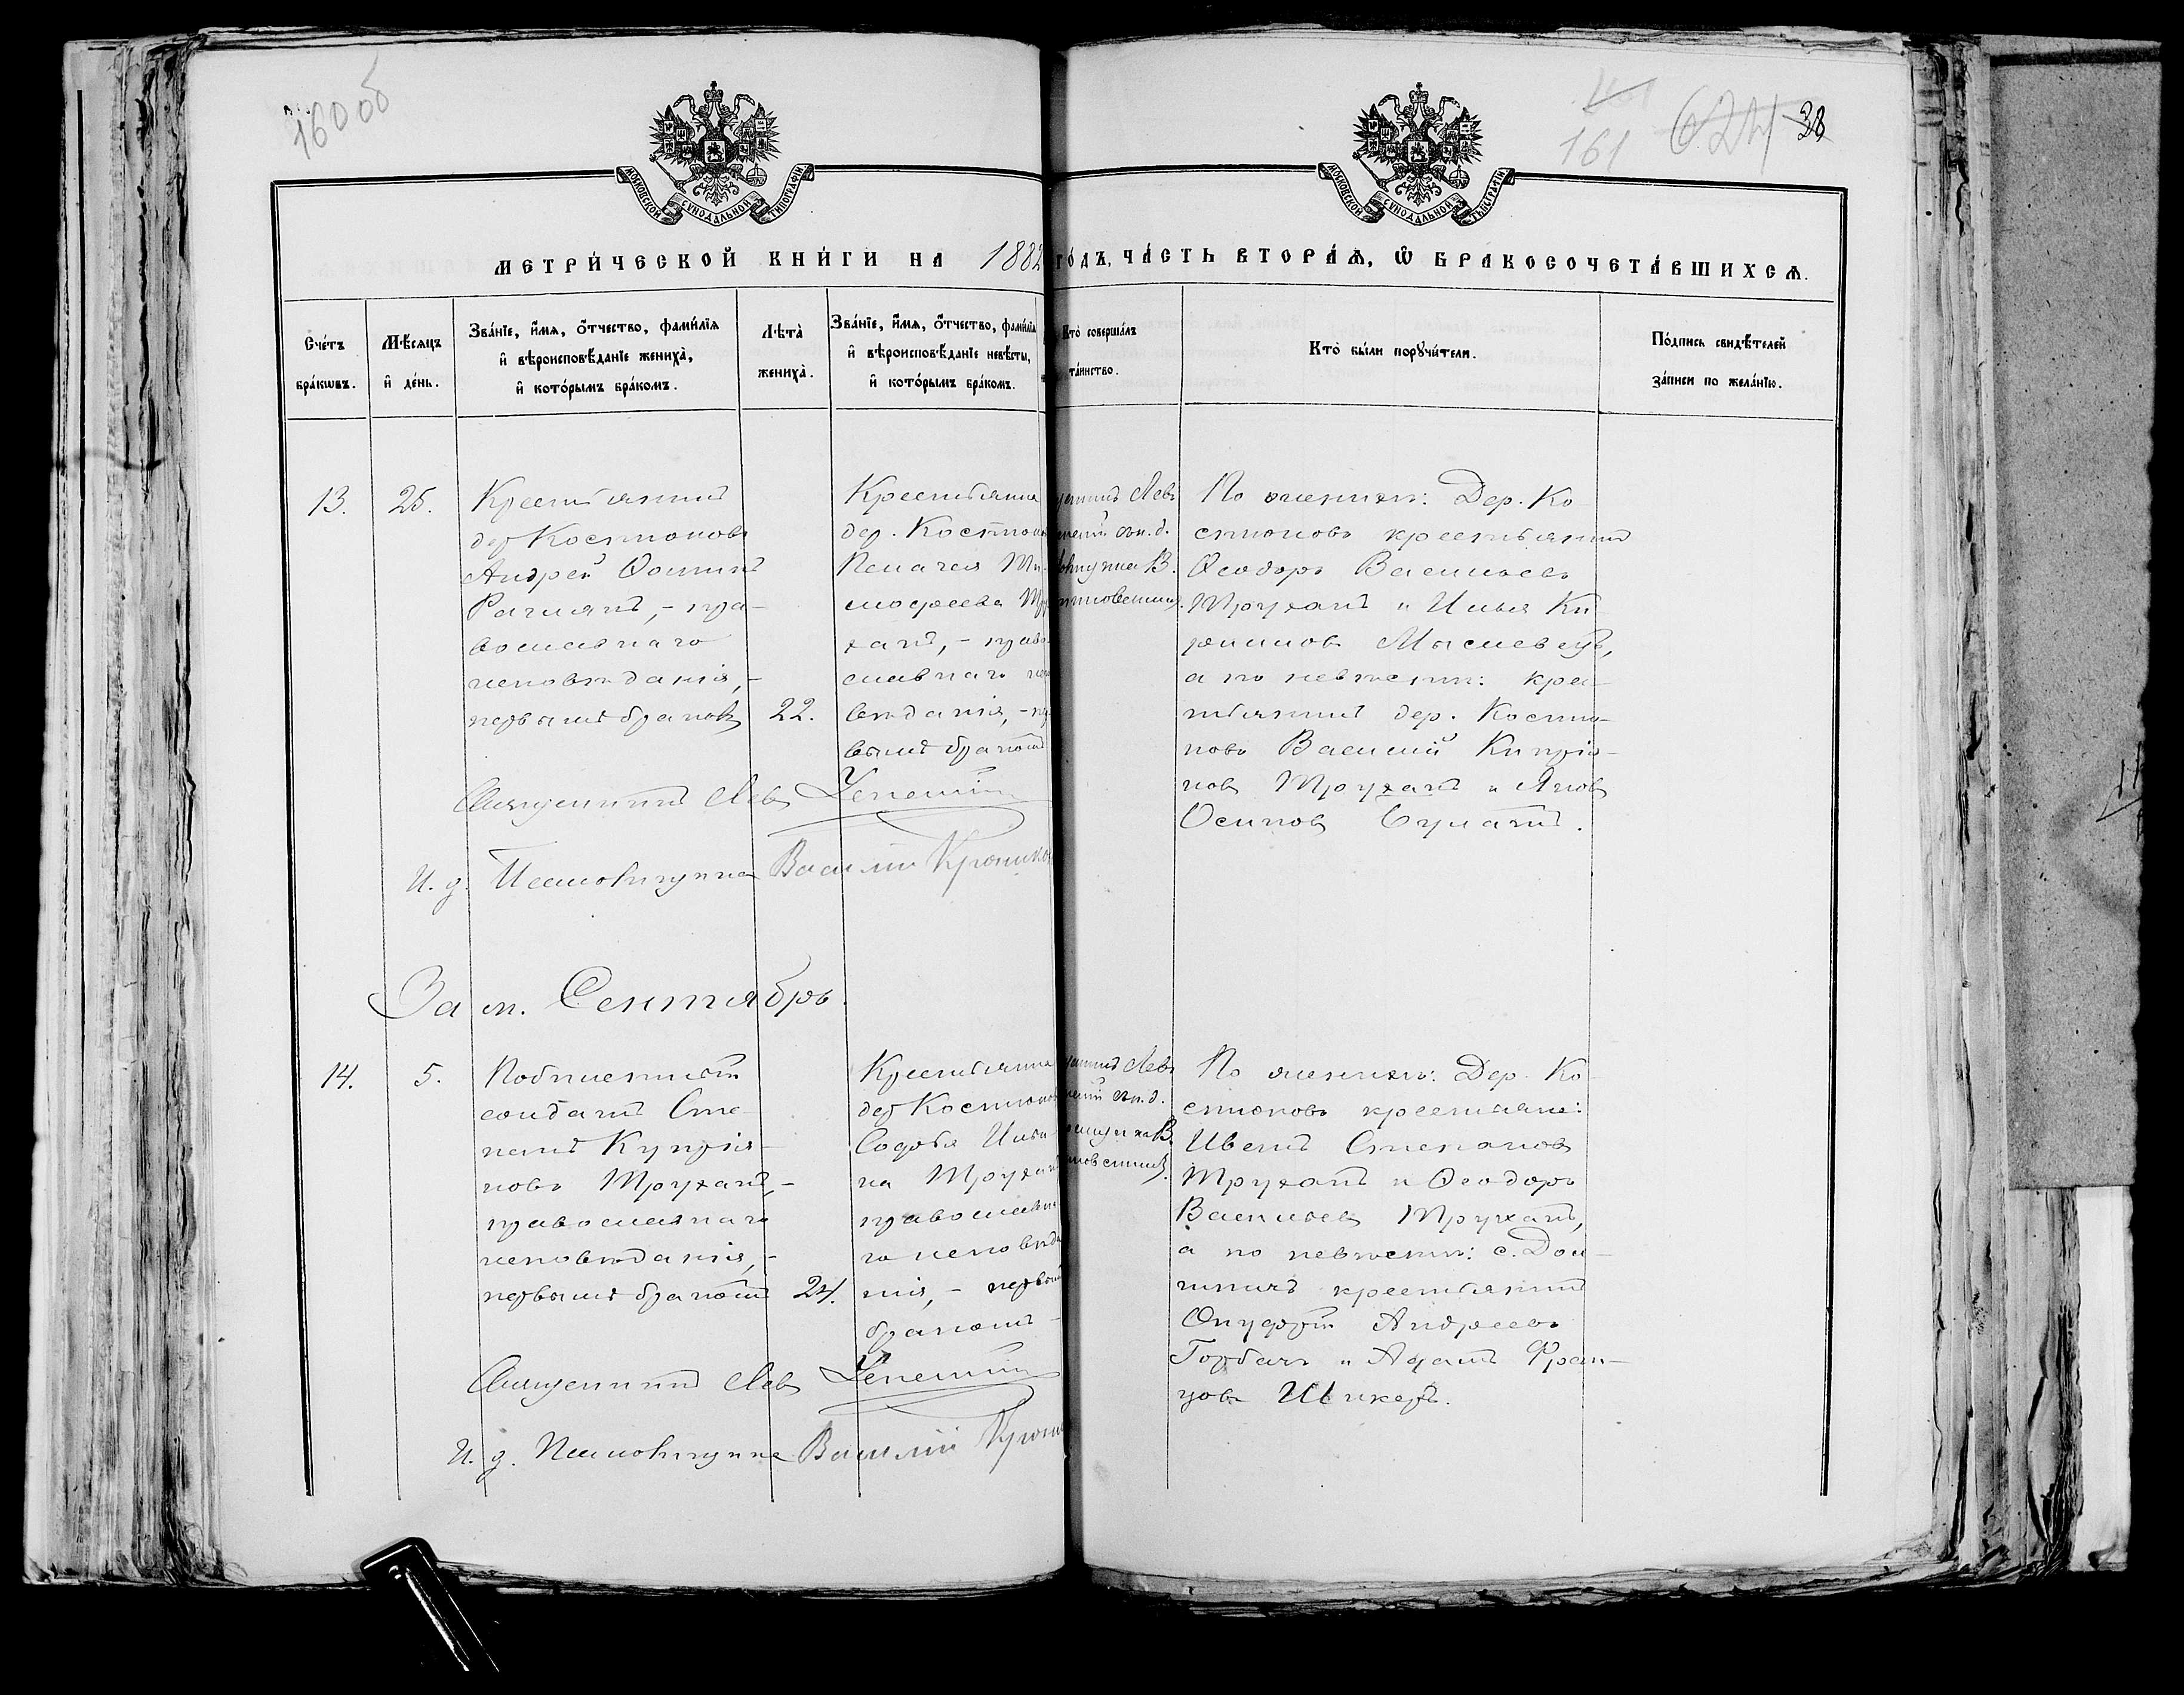 160 об
161
38
МОСКОВСКОЙ СѴНОДАЛЬНОЙ ТИПОГРАФІИ.
МОСКОВСКОЙ СѴНОДАЛЬНОЙ ТИПОГРАФІИ.
МЕТРИ́ЧЕСКОЙ КНИ́ГИ НА 1882
ГО́ДЪ, ЧА́СТЬ ВТОРА́Ѧ, Ѽ БРАКОСОЧЕТА́ВШИХСѦ.
Сче́тъ бра́кѡвъ.
Мѣ́сяцъ и҆ де́нь.
Зва́нїе, и҆́мѧ, ѻ҆́тчество, фами́лїѧ
и҆ вѣроисповѣ́данїе жениха̀,
и҆ кото́рымъ бра́комъ.
Лѣта̀ жениха̀.
Зва́нїе, и҆́мѧ, ѻ҆́тчество, фами́лїѧ
и҆ вѣроисповѣ́данїе невѣ́сты,
и҆ кото́рымъ бра́комъ.
Кто̀ соверша́лъ
та́инство.
Кто̀ бы́ли порꙋчи́тели.
По́дпись свидѣ́телей
за́писи по жела́нїю.
13.
25.
Крестьянинъ
дер Костюковъ
Андрей Ѳоминъ
Рагманъ, - пра-
вославнаго
исповѣданія, -
первымъ бракомъ
22.
Крестьянка
дер. Костюко
Пелагея Ти-
моѳеева Тру
ханъ, - право
славнаго испо
вѣданія, - пер
вымъ бракомъ
Левъ
и. д.
В.
По женихѣ: Дер. Ко
стюковъ крестьянинъ
Ѳеодоръ Васильевъ
Труханъ и Илья Ки
риловъ Мыслевецъ,
а по невѣстѣ: крес
тьянинъ дер. Костю-
ковъ Василій Кипрія-
новъ Труханъ и Яковъ
Осиповъ
Священникъ Левъ
И. д. Псаломщика Василій
За м. Сентябрь.
14.
5.
солдатъ Сте
панъ Купрія-
новъ Труханъ, -
православнаго
исповѣданія, -
первымъ бракомъ
24.
Крестьянка
дер Костюков
Софья Ильи
на Трухан
православна
го исповѣда
нія, - первым
бракомъ -
Левъ
и. д.
В.
По женихѣ: Дер. Ко
стюковъ крестьяне:
Иванъ Степановъ
Труханъ и Ѳеодоръ
Васильевъ Труханъ,
а по невѣстѣ: с. Дол-
гиничъ крестьянинъ
Онуфрій Андреевъ
Горбачъ и Адамъ Фран-
цовъ
Священникъ Левъ
И. д. Псаломщика Василій